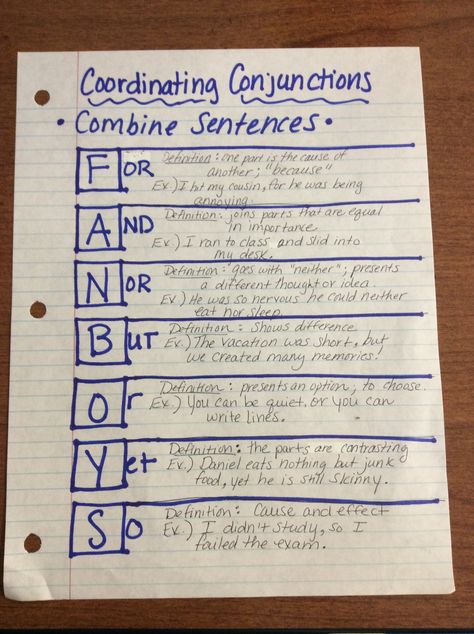 Coordinating Conjunctions
• Combine Sentences •
FOR Definition: one part is the cause of
another; "because"
Ex.) I hit my cousin, for he was being
annoying.
AND Definition: joins parts that are equal
in importance.
Ex.) I ran to class and slid into
my desk.
NOR Definition: goes with "neither"; presents
a different thought or idea.
Ex.) He was so nervous he could neither
eat nor sleep.
BUT Definition: shows difference
Ex.) The vacation was short, but
we created many memories!
Or Definition: presents an option, to choose.
Ex.) You can be quiet. or you can
write lines.
Yet Definition: the parts are contrasting
Ex.) Daniel eats nothing but junk
food, yet he is still skinny.
So Definition: Cause and effect
Ex.) I didn't study, so I
failed the exam.